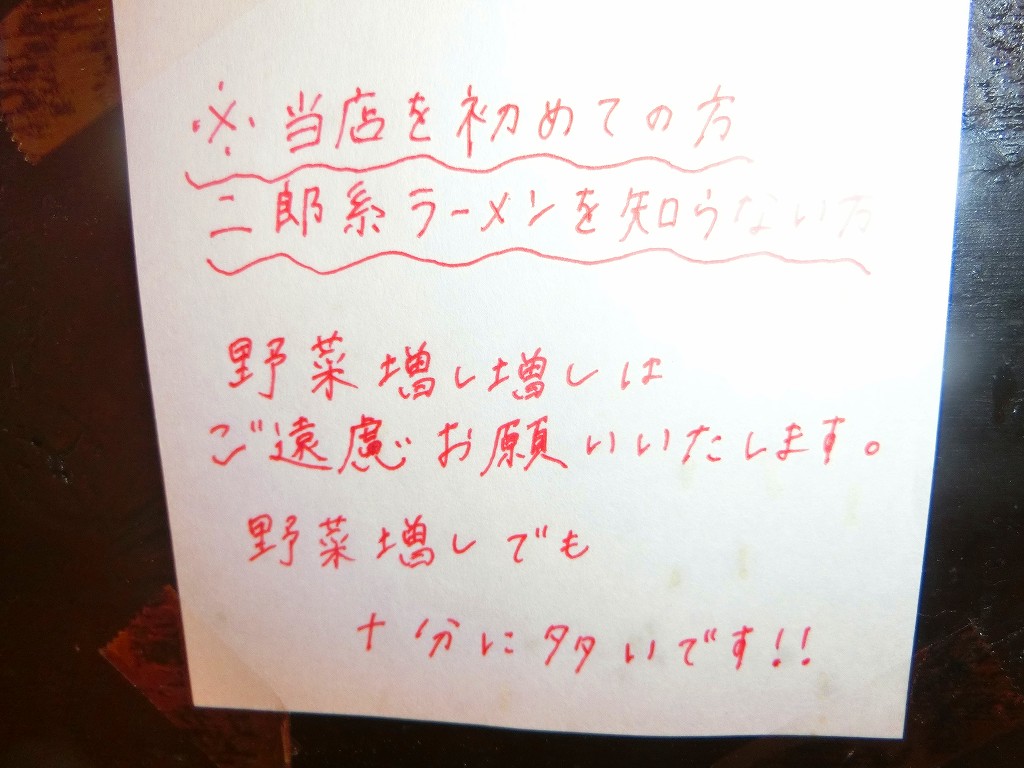 ※当店を初めての方
二郎系ラーメンを知らない方
野菜増し増しは
ご遠慮お願いいたします。
野菜増しでも
十分に多いです!!